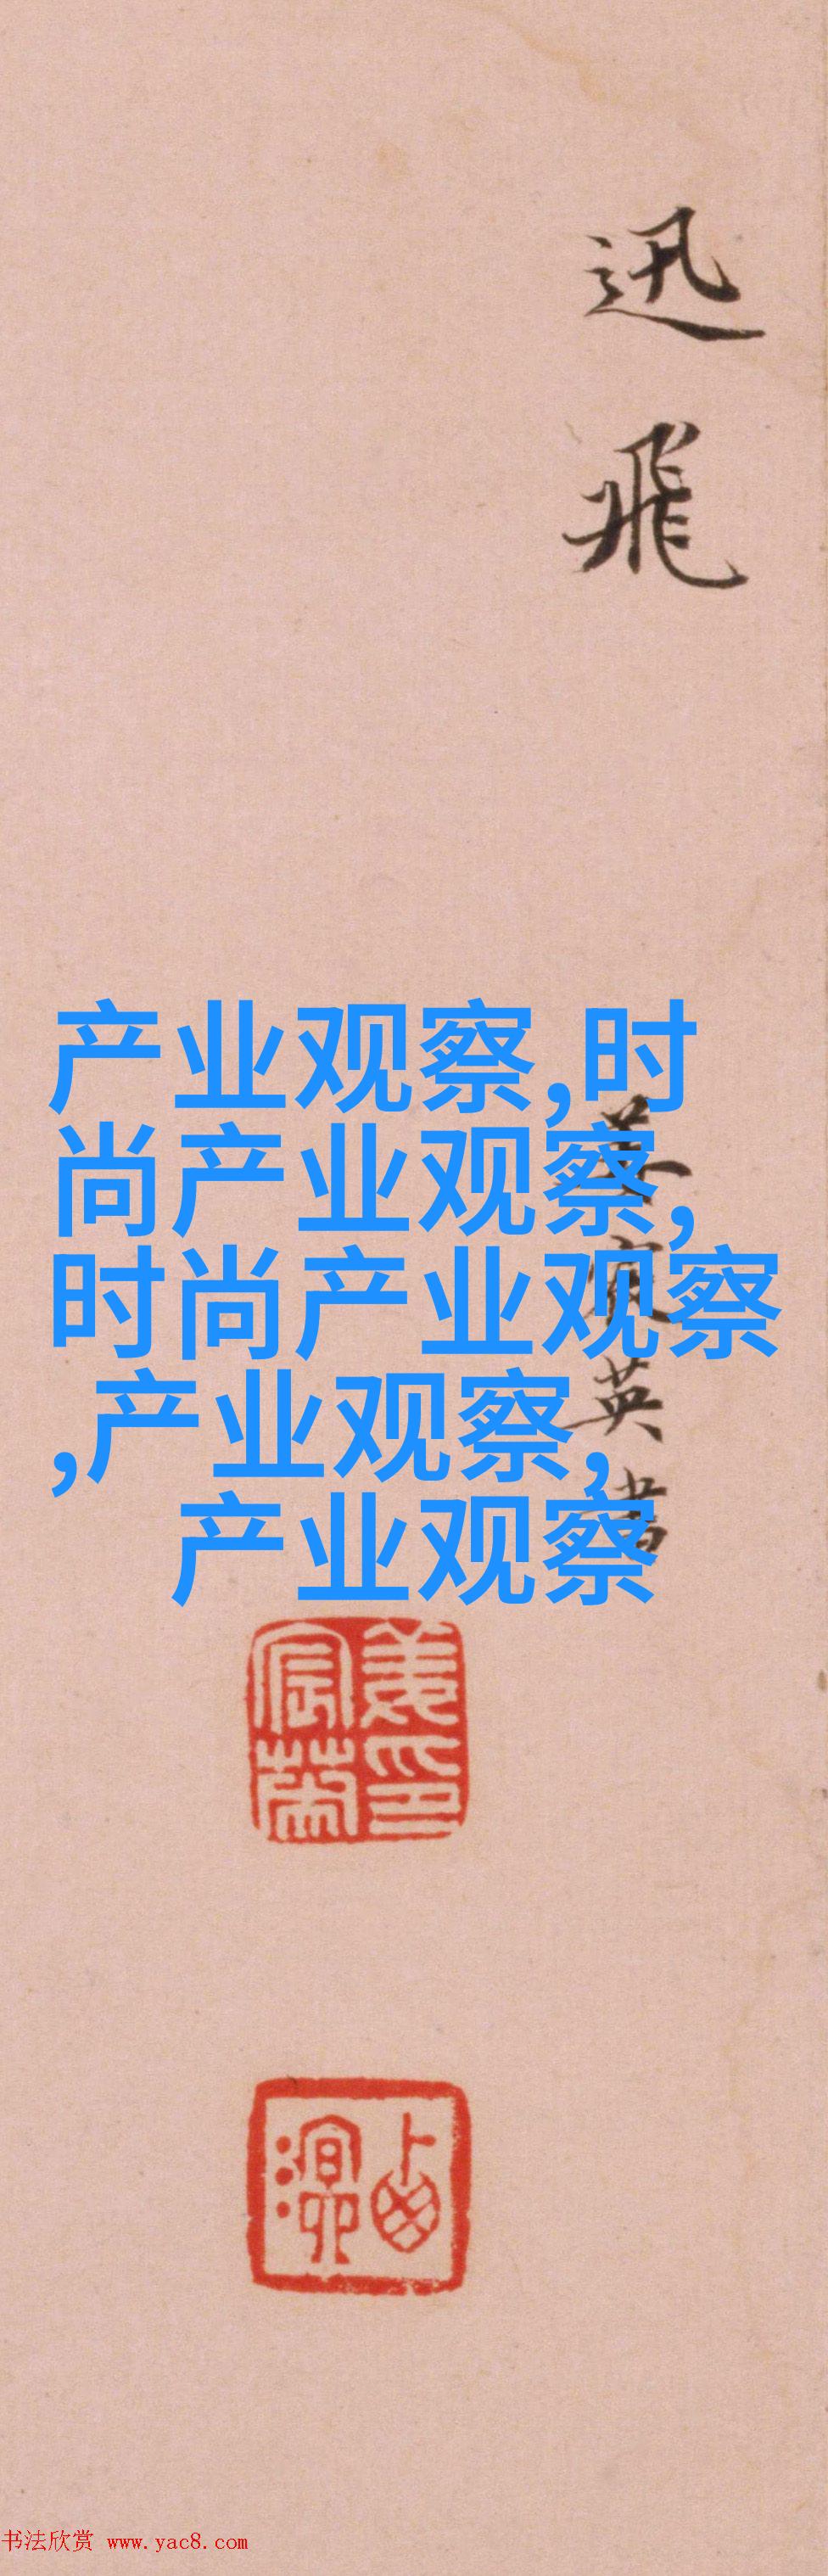 迅
飛
产业观察,时
尚产业观察,
时尚产业观察
,产业观察,
产业观察
姜宸英書
姜宸英印
书法欣赏 www.yac8.com